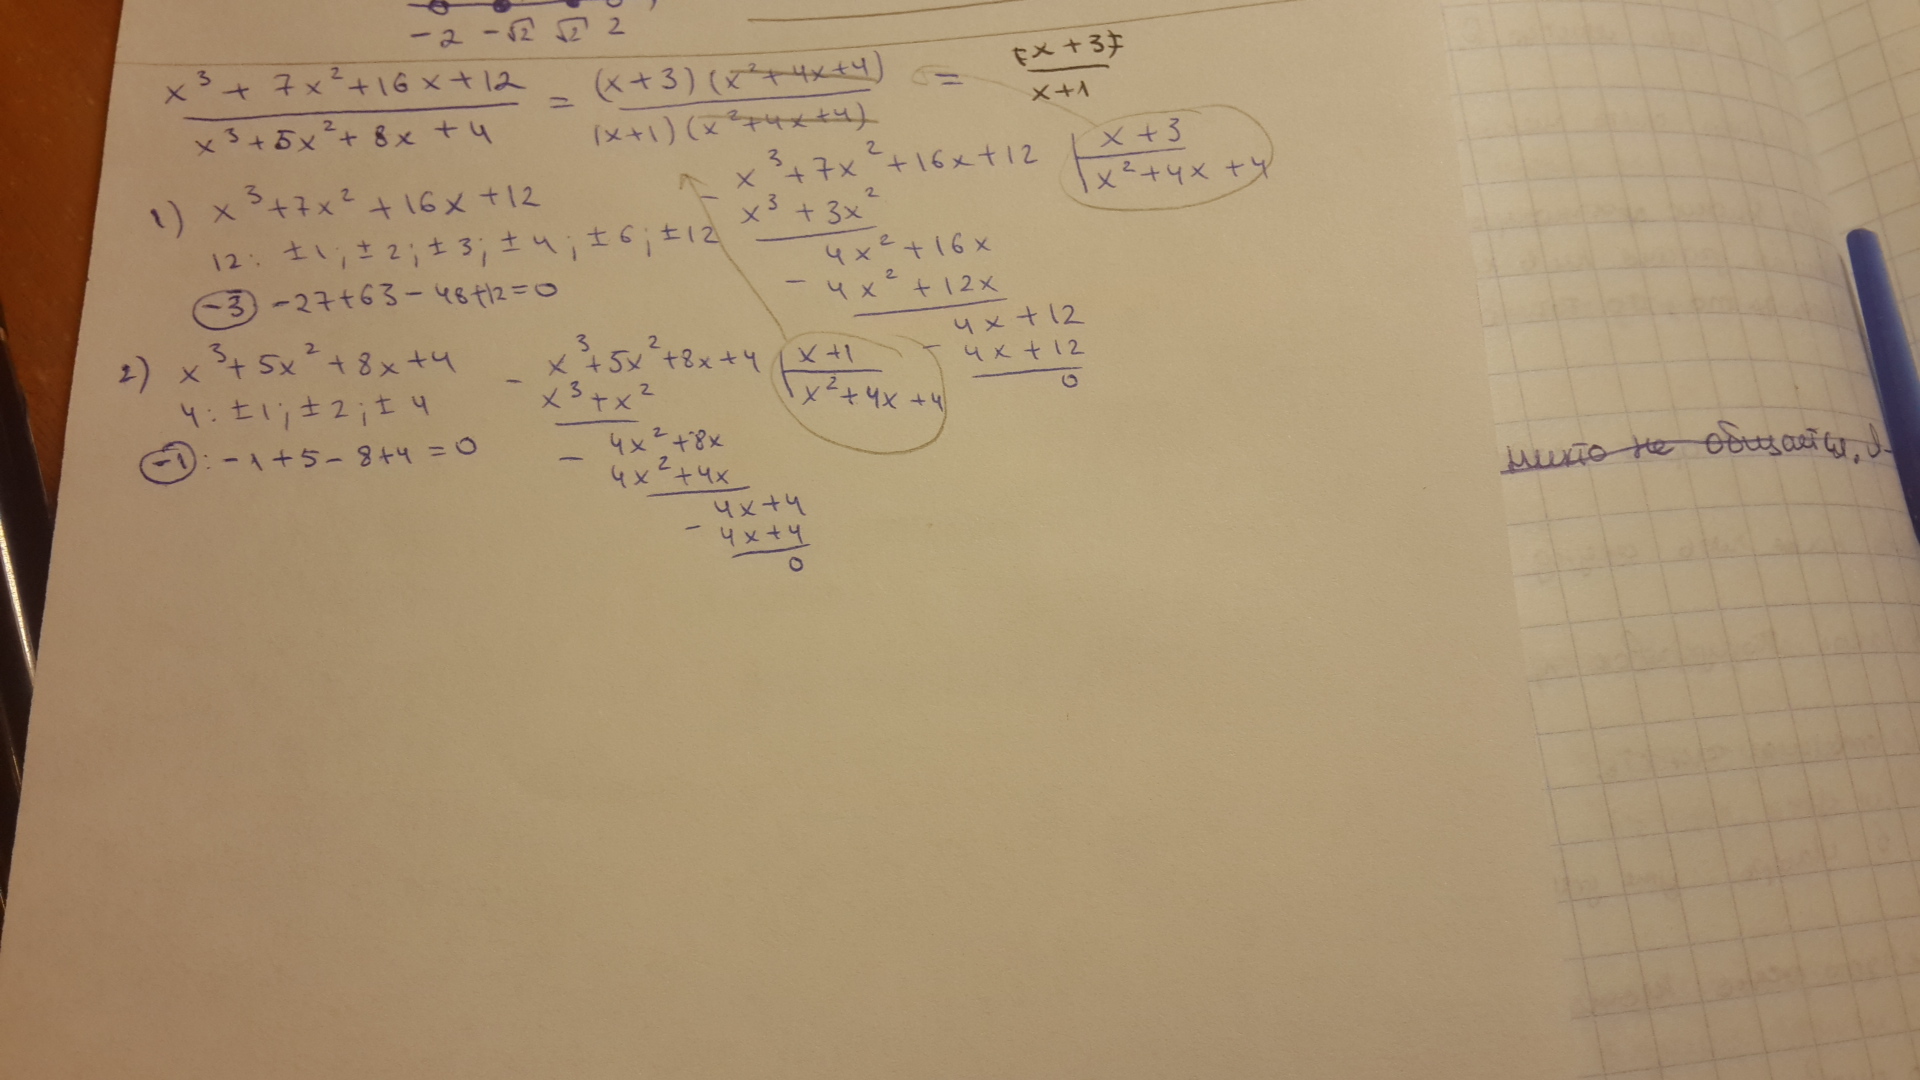 -2 -√2 √2 2
x³ + 7x² + 16x + 12 / x³ + 5x² + 8x + 4 = (x + 3)(x² + 4x + 4) / (x+1)(x² + 4x + 4) = (x + 3) / x+1
1) x³ + 7x² + 16x + 12
12: ±1; ±2; ±3; ±4; ±6; ±12
-3 -27+63-48+12=0
x³ + 7x² + 16x + 12 | x + 3
- x³ + 3x² | x² + 4x + 4
4x² + 16x
- 4x² + 12x
4x + 12
- 4x + 12
0
2) x³ + 5x² + 8x + 4
4: ±1; ±2; ±4
-1: -1+5-8+4=0
x³ + 5x² + 8x + 4 | x+1
- x³ + x² | x² + 4x + 4
4x² + 8x
- 4x² + 4x
4x + 4
- 4x + 4
0
никто не общается,